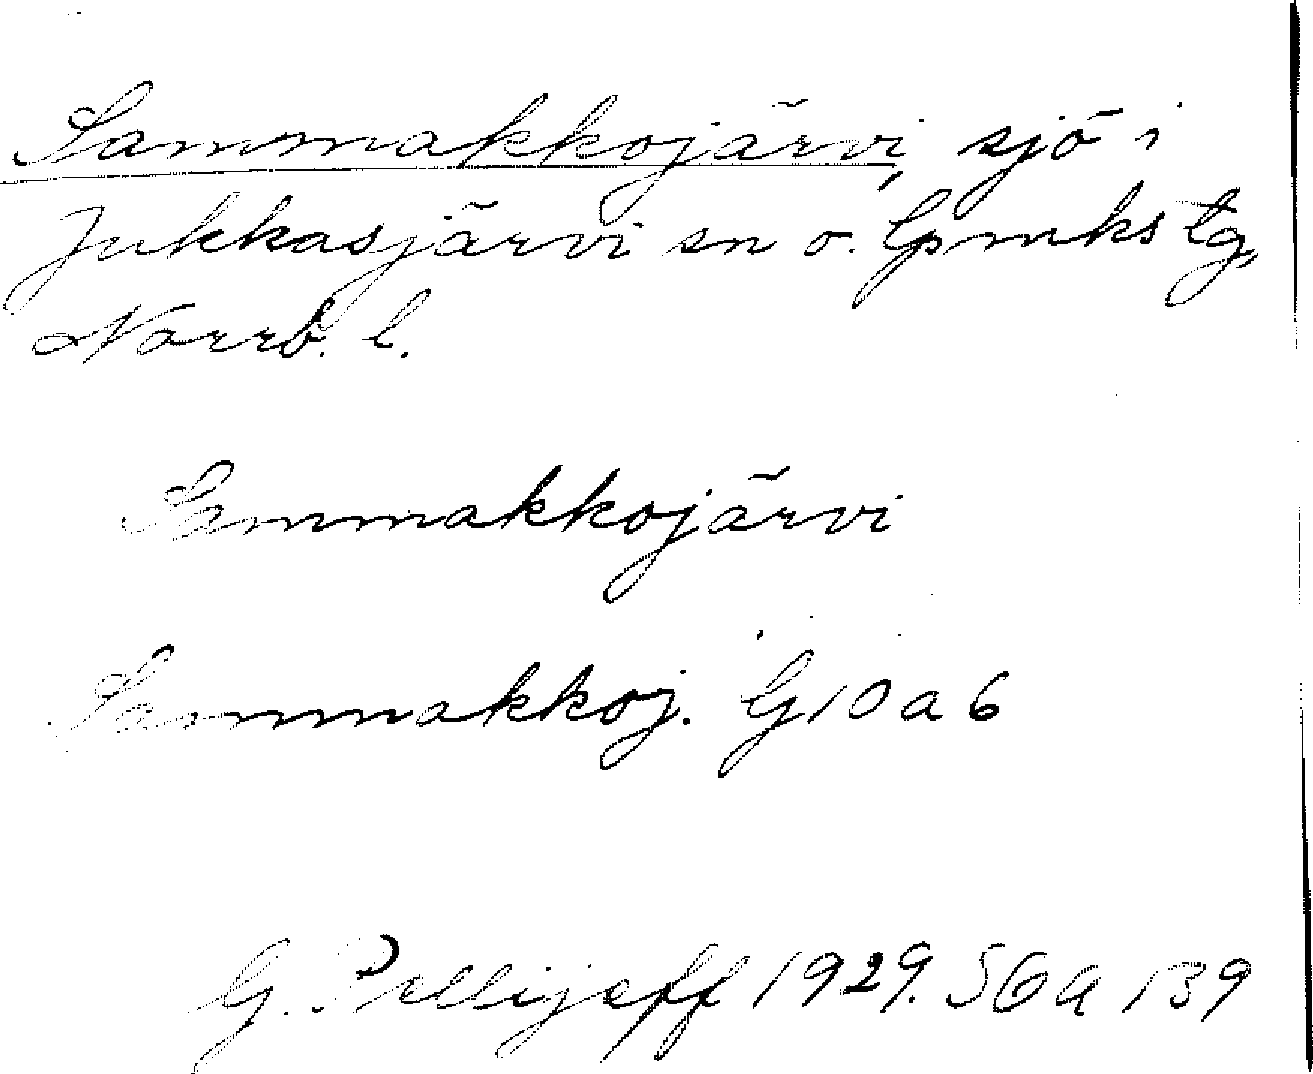 Sammakkojärvi, sjö i
Jukkasjärvi sn o. lpmks tg,
Norrb. l.
Sammakkojärvi
Sammakkoj. G10a6
G. Pellijeff 1929. SGA 139